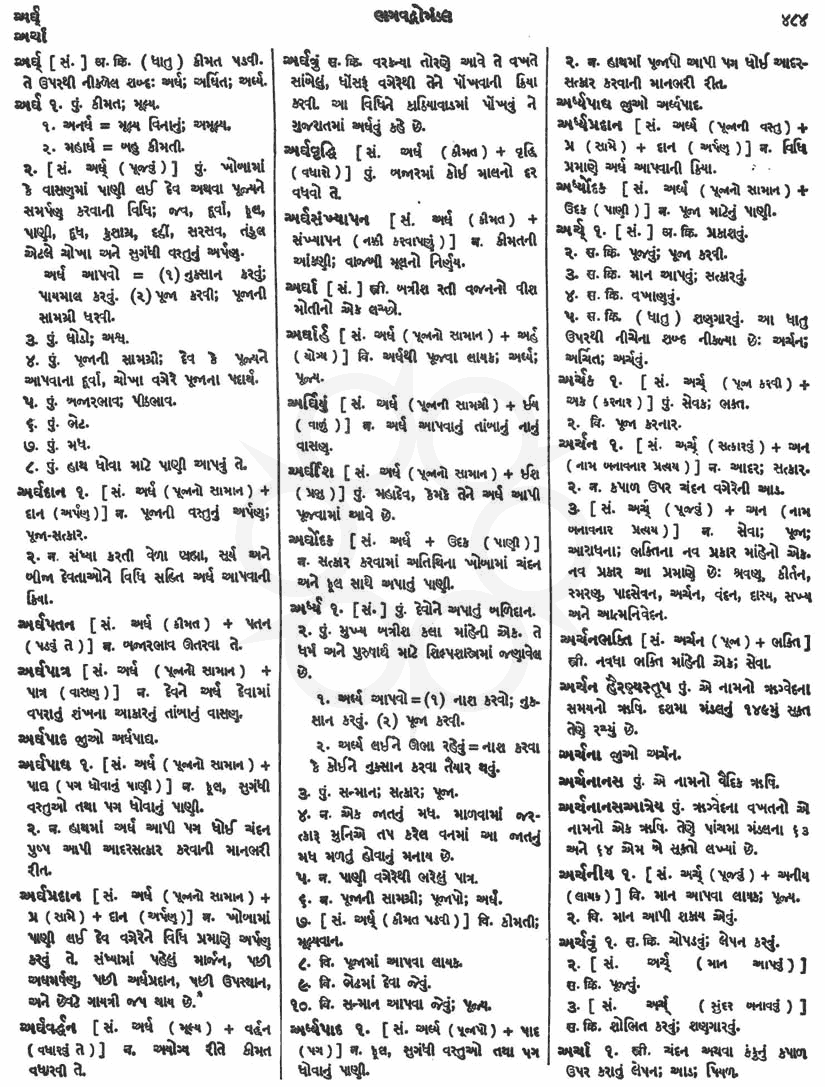 અર્ઘ્
અર્ચા
ભગવદ્ગોમંડલ
૪૮૪
અર્ઘ્ [ સં. ] અ. ક્રિ. ( ધાતુ ) કીમત પડવી.
તે ઉપરથી નીકળેલ શબ્દ: અર્ઘ; અર્ધિત; અર્ઘ્ય.
અર્ઘ ૧. પું. કીમત; મૂલ્ય.
૧. અનર્ઘ = મૂલ્ય વિનાનું; અમૂલ્ય.
૨. મહાર્ઘ = બહુ કીમતી.
૨. [ સં. અર્ઘ્ ( પૂજવું ) ] પું. ખોબામાં
કે વાસણમાં પાણી લઈ દેવ અથવા પૂજ્યને
સમર્પણ કરવાની વિધિ; જવ, દૂર્વા, ફૂલ,
પાણી, દૂધ, કુશાગ્ર, દહીં, સરસવ, તંદુલ
એટલે ચોખા અને સુગંધી વસ્તુનું અર્પણ.
અર્ઘ આપવો = (૧) નુકસાન કરવું;
પાયમાલ કરવું. (૨) પૂજા કરવી; પૂજાની
સામગ્રી ધરવી.
૩. પું. ઘોડો; અશ્વ.
૪. પું. પૂજાની સામગ્રી; દેવ કે પૂજ્યને
આપવાના દૂર્વા, ચોખા વગેરે પૂજાના પદાર્થ.
૫. પું. બજારભાવ; પીઠભાવ.
૬. પું. ભેટ.
૭. પું. મધ.
૮. પું. હાથ ધોવા માટે પાણી આપવું તે.
અર્ઘદાન ૧. [ સં. અર્ઘ ( પૂજાનો સામાન ) +
દાન ( અર્પણ ) ] ન. પૂજાની વસ્તુનું અર્પણ;
પૂજા-સત્કાર.
૨. ન. સંધ્યા કરતી વેળા બ્રહ્મા, સૂર્ય અને
બીજા દેવતાઓને વિધિ સહિત અર્ઘ આપવાની
ક્રિયા.
અર્ઘપતન [ સં. અર્ઘ ( કીમત ) + પતન
( પડવું તે ) ] ન. બજારભાવ ઊતરવા તે.
અર્ઘપાત્ર [ સં. અર્ઘ ( પૂજાનો સામાન ) +
પાત્ર ( વાસણ ) ] ન. દેવને અર્ઘ દેવામાં
વપરાતું શંખના આકારનું તાંબાનું વાસણ.
અર્ઘપાદ જુઓ અર્ઘપાદ્ય.
અર્ઘપાદ્ય ૧. [ સં. અર્ઘ ( પૂજાનો સામાન ) +
પાદ્ય ( પગ ધોવાનું પાણી ) ] ન. ફૂલ, સુગંધી
વસ્તુઓ તથા પગ ધોવાનું પાણી.
૨. ન. હાથમાં અર્ઘ આપી પગ ધોઈ ચંદન
પુષ્પ આપી આદરસત્કાર કરવાની માનભરી
રીત.
અર્ઘપ્રદાન [ સં. અર્ઘ ( પૂજાનો સામાન ) +
પ્ર ( સામે ) + દાન ( અર્પણ ) ] ન. ખોબામાં
પાણી લઈ દેવ વગેરેને વિધિ પ્રમાણે અર્પણ
કરવું તે. સંધ્યામાં પહેલું માર્જન, પછી
અઘમર્ષણ, પછી અર્ઘપ્રદાન, પછી ઉપસ્થાન,
અને છેવટે ગાયત્રી જપ થાય છે.
અર્ઘવર્દ્ધન [ સં. અર્ઘ ( મૂલ્ય ) + વર્દ્ધન
( વધારવું તે ) ] ન. અયોગ્ય રીતે કીમત
વધારવી તે.
અર્ઘવું સ. ક્રિ. વરકન્યા તોરણે આવે તે વખતે
સાંબેલું, ધોંસરૂં વગેરેથી તેને પોંખવાની ક્રિયા
કરવી. આ વિધિને કાઠિયાવાડમાં પોંખવું ને
ગુજરાતમાં અર્ઘવું કહે છે.
અર્ઘવૃદ્ધિ [ સં. અર્ઘ ( કીમત ) + વૃદ્ધિ
( વધારો ) ] પું. બજારમાં કોઈ માલનો દર
વધવો તે.
અર્ઘસંખ્યાપન [ સં. અર્ઘ ( કીમત ) +
સંખ્યાપન ( નક્કી કરવાપણું ) ] ન. કીમતની
આંકણી; વાજબી મૂલનો નિર્ણય.
અર્ઘા [ સં. ] સ્ત્રી. બત્રીશ રતી વજનનો વીશ
મોતીનો એક લચ્છો.
અર્ઘાર્હ [ સં. અર્ઘ ( પૂજાનો સામાન ) + અર્હ
( યોગ્ય ) ] વિ. અર્ઘથી પૂજવા લાયક; અર્ઘ્ય;
પૂજ્ય.
અર્ઘિયું [ સં. અર્ઘ ( પૂજાની સામગ્રી ) + ઈય
( વાળું ) ] ન. અર્ઘ આપવાનું તાંબાનું નાનું
વાસણ.
અર્ઘીશ [ સં. અર્ઘ ( પૂજાનો સામાન ) + ઈશ
( પ્રભુ ) ] પું. મહાદેવ, કેમકે તેને અર્ઘ આપી
પૂજવામાં આવે છે.
અર્ઘોદક [ સં. અર્ઘ + ઉદક ( પાણી ) ]
ન. સત્કાર કરવામાં અતિથિના ખોબામાં ચંદન
અને ફૂલ સાથે અપાતું પાણી.
અર્ઘ્ય ૧. [ સં. ] પું. દેવોને અપાતું બળિદાન.
૨. પું. મુખ્ય બત્રીશ કલા માંહેની એક. તે
ધર્મ અને પુરુષાર્થ માટે શિલ્પશાસ્ત્રમાં જણાવેલ
છે.
૧. અર્ઘ્ય આપવો = (૧) નાશ કરવો; નુક-
સાન કરવું. (૨) પૂજા કરવી.
૨. અર્ઘ્ય લઈને ઊભા રહેવું = નાશ કરવા
કે કોઈને નુકસાન કરવા તૈયાર થવું.
૩. પું. સન્માન; સત્કાર; પૂજા.
૪. ન. એક જાતનું મધ. માળવામાં જર-
ત્કારુ મુનિએ તપ કરેલ વનમાં આ જાતનું
મધ મળતું હોવાનું મનાય છે.
૫. ન. પાણી વગેરેથી ભરેલું પાત્ર.
૬. ન. પૂજાની સામગ્રી; પૂજાપો; અર્ઘ.
૭. [ સં. અર્ઘ્ ( કીમત પડવી ) ] વિ. કીમતી;
મૂલ્યવાન.
૮. વિ. પૂજામાં આપવા લાયક.
૯. વિ. ભેટમાં દેવા જેવું.
૧૦. વિ. સન્માન આપવા જેવું; પૂજ્ય.
અર્ઘ્યપાદ ૧. [ સં. અર્ઘ્ય ( પૂજાપો ) + પાદ
( પગ ) ] ન. ફૂલ, સુગંધી વસ્તુઓ તથા પગ
ધોવાનું પાણી.
૨. ન. હાથમાં પૂજાપો આપી પગ ધોઈ આદર-
સત્કાર કરવાની માનભરી રીત.
અર્ઘ્યપાદ્ય જુઓ અર્ઘ્યપાદ.
અર્ઘ્યપ્રદાન [ સં. અર્ઘ્ય ( પૂજાની વસ્તુ ) +
પ્ર ( સામે ) + દાન ( અર્પણ ) ] ન. વિધિ
પ્રમાણે અર્ઘ આપવાની ક્રિયા.
અર્ઘ્યોદક [ સં. અર્ઘ્ય ( પૂજાનો સામાન ) +
ઉદક ( પાણી ) ] ન. પૂજા માટેનું પાણી.
અર્ચ્ ૧. [ સં. ] અ. ક્રિ. પ્રકાશવું.
૨. સ. ક્રિ. પૂજવું; પૂજા કરવી.
૩. સ. ક્રિ. માન આપવું; સત્કારવું.
૪. સ. ક્રિ. વખાણવું.
૫. સ. ક્રિ. ( ધાતુ ) શણગારવું. આ ધાતુ
ઉપરથી નીચેના શબ્દ નીકળ્યા છેઃ અર્ચન;
અર્ચિત; અર્ચવું.
અર્ચક ૧. [ સં. અર્ચ્ ( પૂજા કરવી ) +
અક ( કરનાર ) ] પું. સેવક; ભક્ત.
૨. વિ. પૂજા કરનાર.
અર્ચન ૧. [ સં. અર્ચ્ ( સત્કારવું ) + અન
( નામ બનાવનાર પ્રત્યય ) ] ન. આદર; સત્કાર.
૨. ન. કપાળ ઉપર ચંદન વગેરેની આડ.
૩. [ સં. અર્ચ્ ( પૂજવું ) + અન ( નામ
બનાવનાર પ્રત્યય ) ] ન. સેવા; પૂજા;
આરાધના; ભક્તિના નવ પ્રકાર માંહેનો એક.
નવ પ્રકાર આ પ્રમાણે છેઃ શ્રવણ, કીર્તન,
સ્મરણ, પાદસેવન, અર્ચન, વંદન, દાસ્ય, સખ્ય
અને આત્મનિવેદન.
અર્ચનભક્તિ [ સં. અર્ચન ( પૂજા ) + ભક્તિ ]
સ્ત્રી. નવધા ભક્તિ માંહેની એક; સેવા.
અર્ચન હૈરણ્યસ્તુપ પું. એ નામનો ઋગ્વેદના
સમયનો ઋષિ. દશમા મંડલનું ૧૪૯મું સૂક્ત
તેણે રચ્યું છે.
અર્ચના જુઓ અર્ચન.
અર્ચનાનસ પું. એ નામનો વૈદિક ઋષિ.
અર્ચનાનસઆત્રેય પું. ઋગ્વેદના વખતનો એ
નામનો એક ઋષિ. તેણે પાંચમા મંડલના ૬૩
અને ૬૪ એમ બે સૂક્તો લખ્યાં છે.
અર્ચનીય ૧. [ સં. અર્ચ્ ( પૂજવું ) + અનીય
( લાયક ) ] વિ. માન આપવા લાયક; પૂજ્ય.
૨. વિ. માન આપી શકાય એવું.
અર્ચવું ૧. સ. ક્રિ. ચોપડવું; લેપન કરવું.
૨. [ સં. અર્ચ્ ( માન આપવું ) ]
સ. ક્રિ. પૂજવું.
૩. [ સં. અર્ચ્ ( સુંદર બનાવવું ) ]
સ. ક્રિ. શોભિત કરવું; શણગારવું.
અર્ચા ૧. સ્ત્રી. ચંદન અથવા કંકુનું કપાળ
ઉપર કરાતું લેપન; આડ; પિયળ.